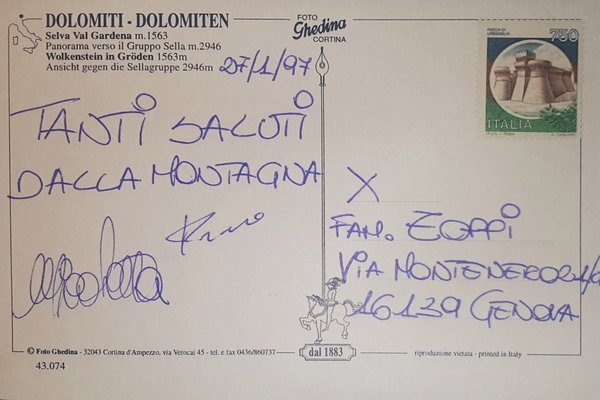 DOLOMITI - DOLOMITEN
Selva Val Gardena m.1563
Panorama verso il Gruppo Sella m.2946
Wolkenstein in Gröden 1563m
Ansicht gegen die Sellagruppe 2946m
27/1/97
FOTO
Ghedina
CORTINA
ROCCA DI URBISAGLIA
750
ITALIA
TANTI SALUTI
DALLA MONTAGNA
X
FAM. ZOPPI
VIA MONTENERO
16139 GENOVA
© Foto Ghedina - 32043 Cortina d'Ampezzo, via Verocai 45 - tel. e fax 0436/860737
dal 1883
riproduzione vietata - printed in Italy
43.074